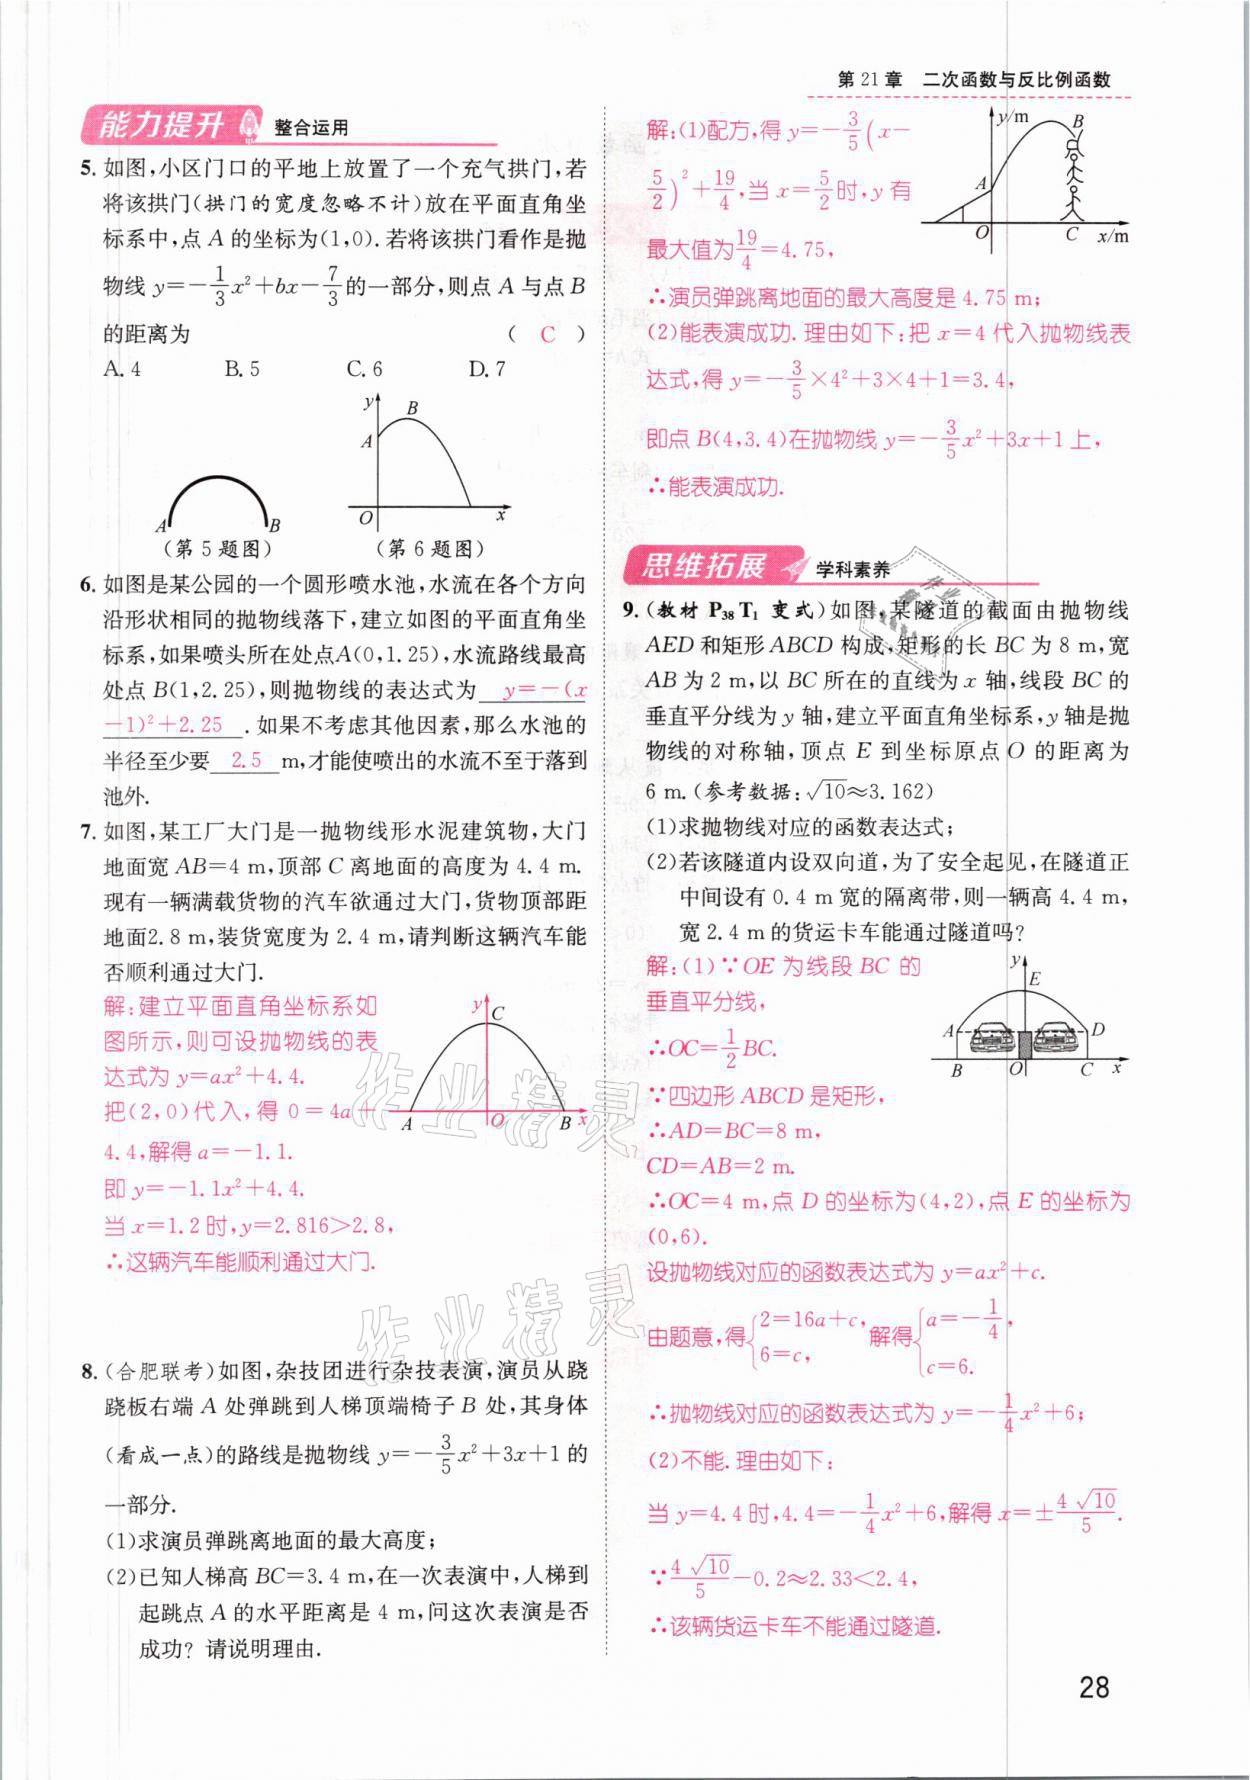 第21章 二次函数与反比例函数
能力提升 整合运用
5. 如图,小区门口的平地上放置了一个充气拱门,若
将该拱门(拱门的宽度忽略不计)放在平面直角坐
标系中,点 A 的坐标为(1,0).若将该拱门看作是抛
物线 y=-1/3x²+bx-7/3的一部分,则点 A 与点 B
的距离为 ( C )
A. 4 B. 5 C. 6 D. 7
y
B
A
O
x
A
B
(第5题图) (第6题图)
6. 如图是某公园的一个圆形喷水池,水流在各个方向
沿形状相同的抛物线落下,建立如图的平面直角坐
标系,如果喷头所在处点A(0,1.25),水流路线最高
处点 B(1,2.25),则抛物线的表达式为 y=-(x
-1)²+2.25 .如果不考虑其他因素,那么水池的
半径至少要 2.5 m,才能使喷出的水流不至于落到
池外.
7. 如图,某工厂大门是一抛物线形水泥建筑物,大门
地面宽 AB=4 m,顶部 C 离地面的高度为 4.4 m.
现有一辆满载货物的汽车欲通过大门,货物顶部距
地面2.8 m,装货宽度为 2.4 m,请判断这辆汽车能
否顺利通过大门.
解:建立平面直角坐标系如
图所示,则可设抛物线的表
达式为 y=ax²+4.4.
把(2,0)代入,得 0=4a+
4.4,解得 a=-1.1.
即 y=-1.1x²+4.4.
当 x=1.2 时,y=2.816>2.8,
∴这辆汽车能顺利通过大门.
y
C
A
O
B
x
8. (合肥联考)如图,杂技团进行杂技表演,演员从跷
跷板右端 A 处弹跳到人梯顶端椅子 B 处,其身体
(看成一点)的路线是抛物线 y=-3/5x²+3x+1 的
一部分.
(1)求演员弹跳离地面的最大高度;
(2)已知人梯高 BC=3.4 m,在一次表演中,人梯到
起跳点 A 的水平距离是 4 m,问这次表演是否
成功?请说明理由.
解:(1)配方,得 y=-3/5(x-
5/2)²+19/4,当 x=5/2时,y 有
最大值为19/4=4.75,
∴演员弹跳离地面的最大高度是 4.75 m;
(2)能表演成功.理由如下:把 x=4 代入抛物线表
达式,得 y=-3/5×4²+3×4+1=3.4,
即点 B(4,3.4)在抛物线 y=-3/5x²+3x+1 上,
∴能表演成功.
y/m
B
A
O
C
x/m
思维拓展 学科素养
9. (教材 P38 T1 变式)如图,某隧道的截面由抛物线
AED 和矩形 ABCD 构成,矩形的长 BC 为 8 m,宽
AB 为 2 m,以 BC 所在的直线为 x 轴,线段 BC 的
垂直平分线为 y 轴,建立平面直角坐标系,y 轴是抛
物线的对称轴,顶点 E 到坐标原点 O 的距离为
6 m.(参考数据:√10≈3.162)
(1)求抛物线对应的函数表达式;
(2)若该隧道内设双向道,为了安全起见,在隧道正
中间设有 0.4 m 宽的隔离带,则一辆高 4.4 m,
宽 2.4 m 的货运卡车能通过隧道吗?
解:(1)∵OE 为线段 BC 的
垂直平分线,
∴OC=1/2BC.
∵四边形 ABCD 是矩形,
∴AD=BC=8 m,
CD=AB=2 m.
∴OC=4 m,点 D 的坐标为(4,2),点 E 的坐标为
(0,6).
设抛物线对应的函数表达式为 y=ax²+c.
由题意,得{2=16a+c, 6=c, 解得{a=-1/4, c=6.
∴抛物线对应的函数表达式为 y=-1/4x²+6;
(2)不能.理由如下:
当 y=4.4 时,4.4=-1/4x²+6,解得 x=±4√10/5.
∵4√10/5-0.2≈2.33<2.4,
∴该辆货运卡车不能通过隧道.
y
E
A
D
B
O
C
x
作业精灵
作业精灵
28